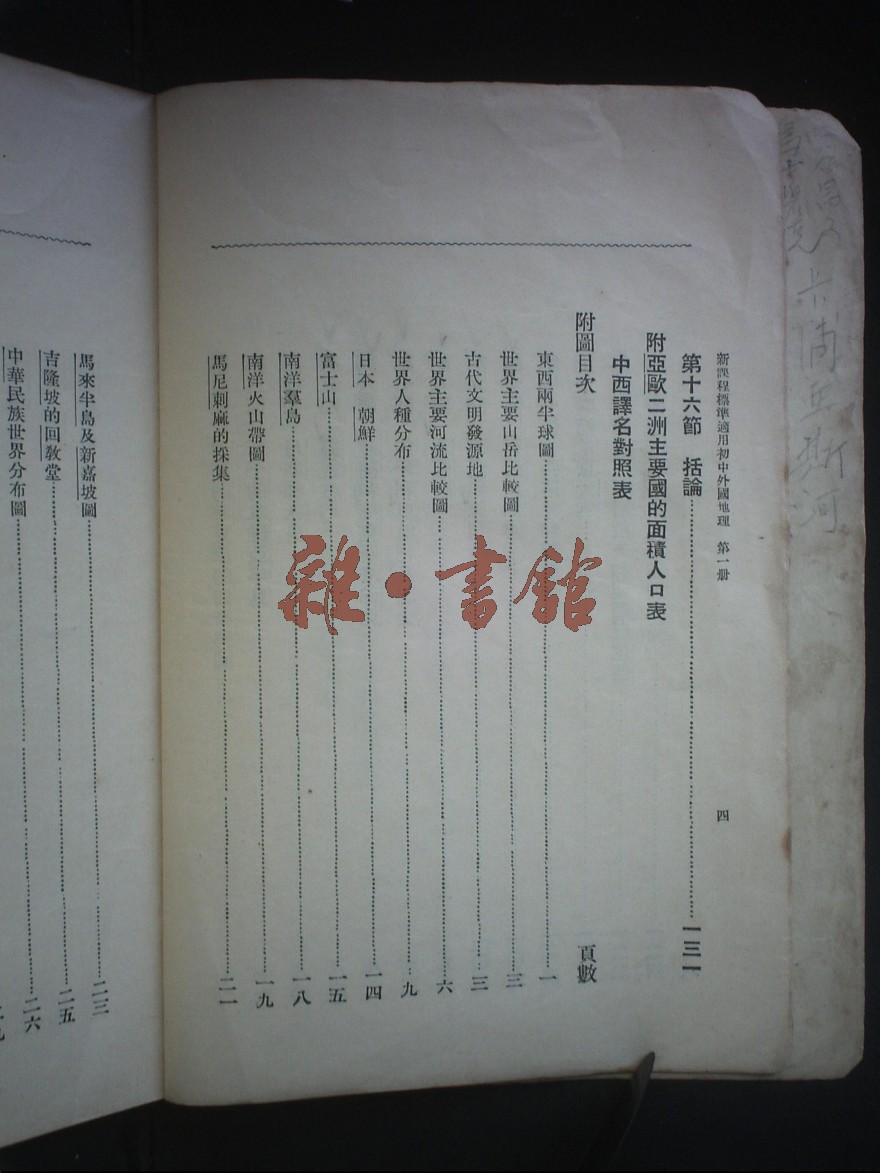 新課程標準適用初中外國地理　第一册
四
第十六節　括論……一三一
附亞歐二洲主要國的面積人口表
中西譯名對照表
附圖目次　頁數
東西兩半球圖……一
世界主要山岳比較圖……三
古代文明發源地……三
世界主要河流比較圖……六
世界人種分布……九
日本　朝鮮……一四
富士山……一五
南洋羣島……一八
南洋火山帶圖……一九
馬尼剌麻的採集……二一
馬來半島及新嘉坡圖……二三
吉隆坡的回教堂……二五
中華民族世界分布圖……二六
雜·書館
斯河